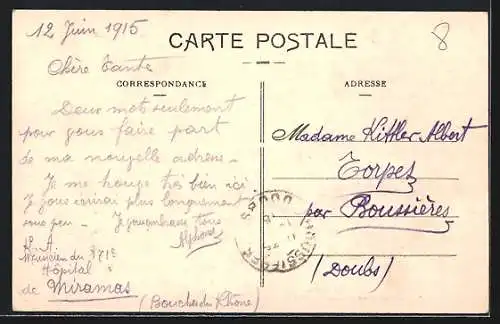 12 Juin 1915
CARTE POSTALE
8
Chère Tante
CORRESPONDANCE
Deux mot seulement
pour vous faire part
de ma nouvelle adresse -
Je me trouve très bien ici.
Je vous écrirai plus longuement
sous peu - Je vous embrasse tous
Alphonse
Musicien du 371e
Hôpital
de Miramas
(Bouches du Rhône)
ADRESSE
Madame Kittler Albert
Torpes
par Boussières
(Doubs)